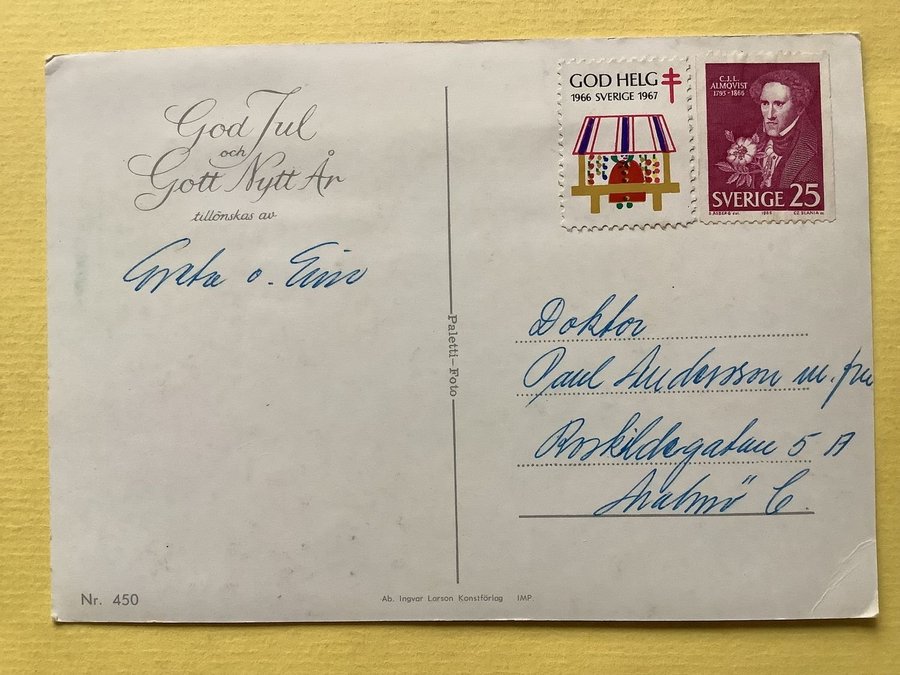 God Jul
och
Gott Nytt År
tillönskas av
Greta o. Eino
Paletti-Foto
GOD HELG
1966 SVERIGE 1967
C.J.L.
ALMQVIST
1793-1866
SVERIGE 25
1966
CZ. SLANIA
Doktor
Paul Andersson m. fru
Roskildegatan 5 A
Malmö C.
Nr. 450
Ab. Ingvar Larson Konstförlag IMP.